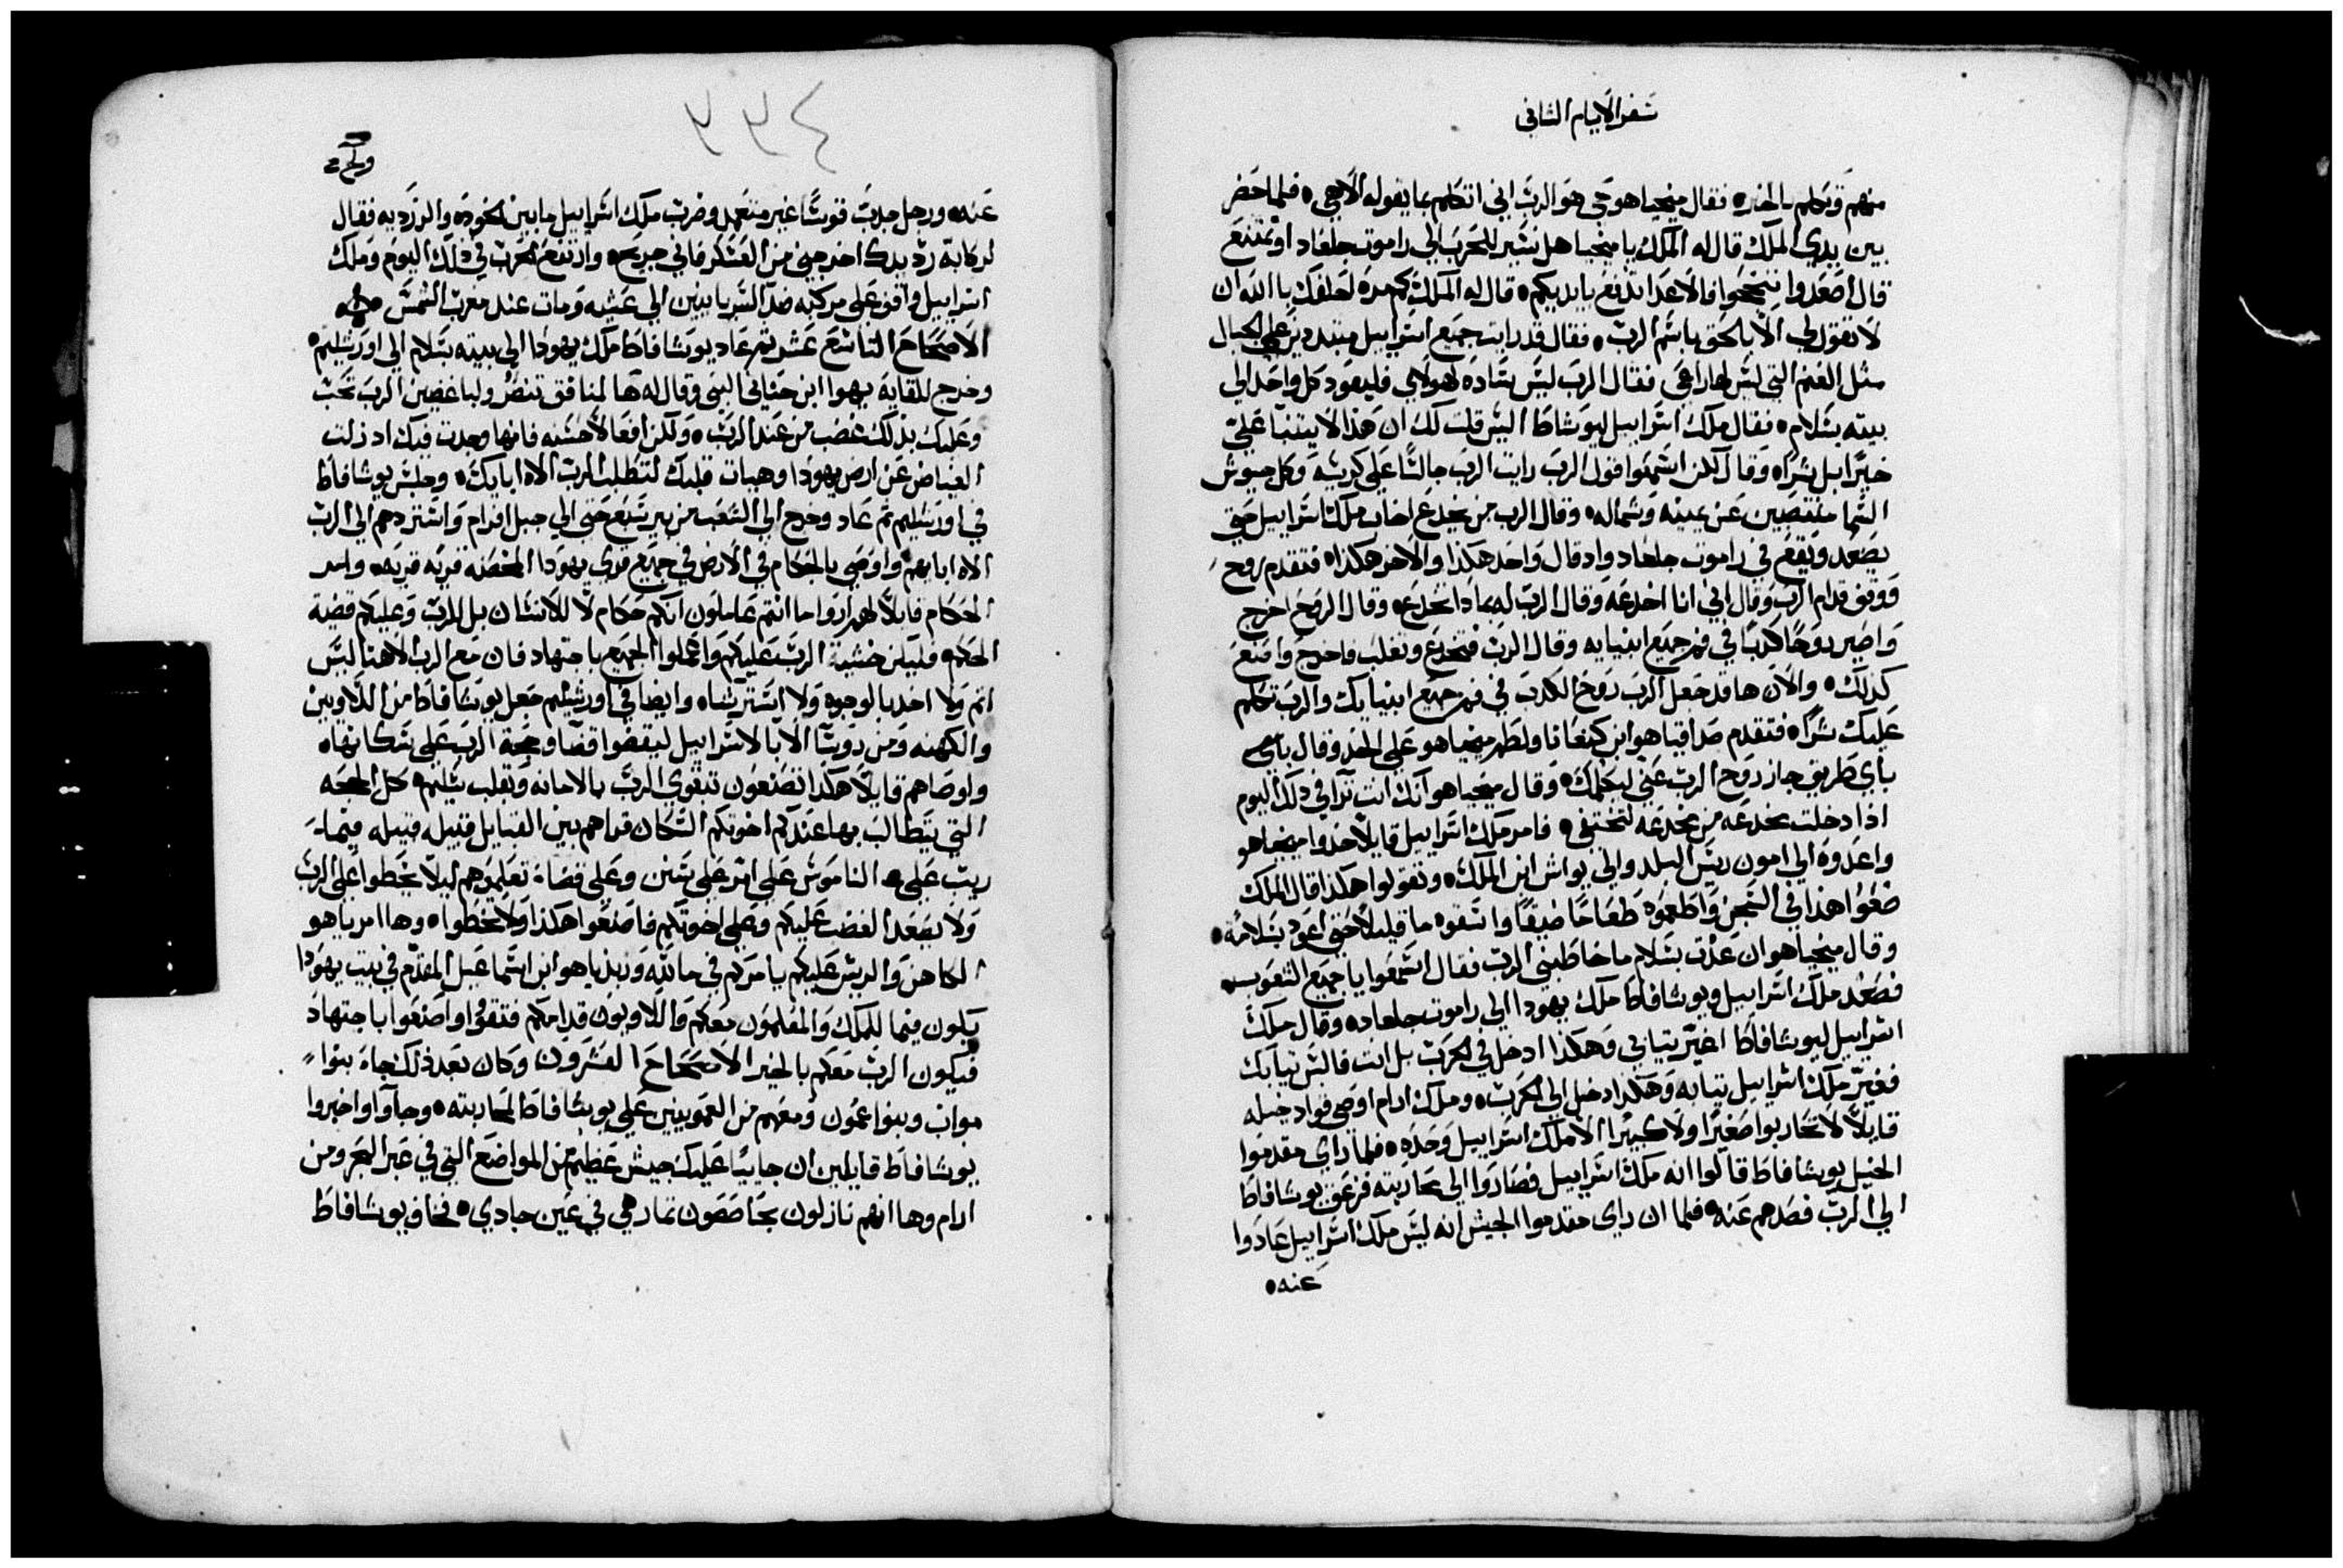 سفر الايام الثاني
منهم وتكلم بالخير فقال ميخيا هو حي هو الرب اني اتكلم بما يقوله الاهي فلما حضر
بين يدي الملك قال له الملك يا ميخيا هل نسير للحرب الي راموت جلعاد او نمتنع
قال اصعدوا فتنجحوا فالاعدا تدفع بايديكم قال له الملك كم مره احلفك باالله ان
لا تقول لي الا بالحق باسم الرب فقال قد رايت جميع اسراييل متبددين علي الجبال
مثل الغنم التي ليس لها راعي فقال الرب ليس ساده لهولاي فليعود كل واحد الي
بيته بسلام فقال ملك اسراييل ليوشافاط اليس قلت لك ان هذا لا يتنبا علي
خيرا بل شرا وقال لكن اسمعوا قول الرب رايت الرب جالسا علي كرسيه وكل جيوش
السما منتصبين عن يمينه وشماله وقال الرب من يخدع اخاب ملك اسراييل حتي
يصعد ويقع في راموت جلعاد واد قال واحد هكذا والاخر هكذا فتقدم روح
ووقف قدام الرب وقال اني انا اخدعه وقال الرب له بمادا تخدع وقال الروح اخرج
واصير روحا كدبا في فم جميع انبيايه وقال الرب فتخدع وتغلب فاخرج واصنع
كذلك والان ها قد جعل الرب روح الكدب في فم جميع انبيايك والرب تكلم
عليك شرا فتقدم صداقيا هو ابن كنعانا ولطم ميخيا هو علي الخد وقال باي
باي طريق جاز روح الرب عني ليكلمك وقال ميخيا هو انك انت ترا في ذلك اليوم
اذا دخلت مخدعه من مخدعه لتختفي فامر ملك اسراييل قايلا خدوا ميخيا هو
واعدوه الي امون ريس البلد والي يواش ابن الملك وتقولوا هكذا قال الملك
ضعوا هذا في السجن واطعموه طعاما ضيقا واسقوه ما قليلا حتي اعود بسلامه
وقال ميخيا هو ان عدت بسلام ما خاطبني الرب فقال اسمعوا يا جميع الشعوب
فصعد ملك اسراييل ويوشافاط ملك يهودا الي راموت جلعاد وقال ملك
اسراييل ليوشافاط اغير تيابي وهكذا ادخل في الحرب بل انت فالبس تيابك
فغير ملك اسراييل تيابه وهكذا دخل الي الحرب وملك ادام اوصي قواد خيله
قايلا لا تحاربوا صغيرا ولا كبيرا الا ملك اسراييل وحده فلما راي مقدموا
الخيل يوشافاط قالوا انه ملك اسراييل فصاروا الي محاربته فزعق يوشافاط
الي الرب فصدهم عنه فلما ان راي مقدموا الجيش انه ليس ملك اسراييل عادوا
عنه
٤٣٣
عنه ورجل جدب قوسا غير متعمد وضرب ملك اسراييل ما بين الخوده والزرديه فقال
لركابه رد يدك اخرجني من العسكر فاني جريح وارتفع الحرب في ذلك اليوم وملك
اسراييل واقف علي مركبه ضد السريانيين الي عشيه ومات عند مغرب الشمس
الاصحاح التاسع عشر تم عاد يوشافاط ملك يهودا الي بيته بسلام الي اورشليم
وخرج للقايه يهوا ابن حناني النبي وقال له ها لمنافق تنصر ولباغضين الرب تحب
وعليك بذلك غضب من عند الرب ولكن افعالا حسنه فانها وجدت فيك اد ذلت
الغياض عن ارض يهودا وهيات قلبك لتطلب الرب الاه ابايك وجلس يوشافاط
في اورشليم تم عاد وخرج الي الشعب من بير سبع حتي الي جبل افرام واستردهم الي الرب
الاه ابايهم واوصي بالحكام في الارض في جميع قري يهودا المحصنه قريه قريه وامر
الحكام قايلا لهم اروا ما انتم عاملون انكم حكام لا للانسان بل للرب وعليكم قضية
الحكم فليكن خشية الرب عليكم واعملوا الجميع باجتهاد فان مع الرب الاهنا ليس
اتم ولا اخد بالوجوه ولا استرشاه وايضا في اورشليم جعل يوشافاط من اللاويين
والكهنه ومن روسا الابا لاسراييل ليقضوا قضا وحجة الرب علي سكانها
واوصاهم قايلا هكدا تصنعون تتقوي الرب بالامانه وبقلب سليم كل الحجه
التي يتطالب بها عندكم اخوتكم السكان قراهم بين القبايل قبيله قبيله فيما
ريب علي الناموس علي امر علي سنن وعلي قضاة تعليموهم ليلا يخطوا علي الرب
ولا يصعد الغضب عليكم وعلي اخوتكم فاصنعوا هكذا ولا تخطوا وها امريا هو
الكاهن والريس عليكم يامركم في ما لله وزبديا هو ابن اسماعيل المقدم في بيت يهودا
يكون فيما للملك والمعلمون معكم واللاويون قدامكم فتقووا واصنعوا باجتهاد
فيكون الرب معكم بالخير الاصحاح العشرون وكان بعد ذلك جاه بنوا
مواب وبنوا عمون ومعهم من العمونيين علي يوشافاط لمحاربته وجاوا واخبروا
يوشافاط قايلين ان جاييا عليك جيش عظيم من المواضع التي في عبر البحر ومن
ادام وها انهم نازلون بحاصصون تمار هي في عين جادي فخاف يوشافاط